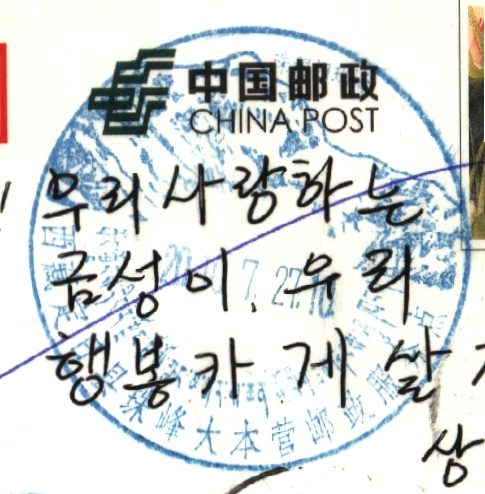 中国邮政
CHINA POST
우리 사랑하는
금성이. 우리
행봉카게 살
상
珠峰大本营邮政服